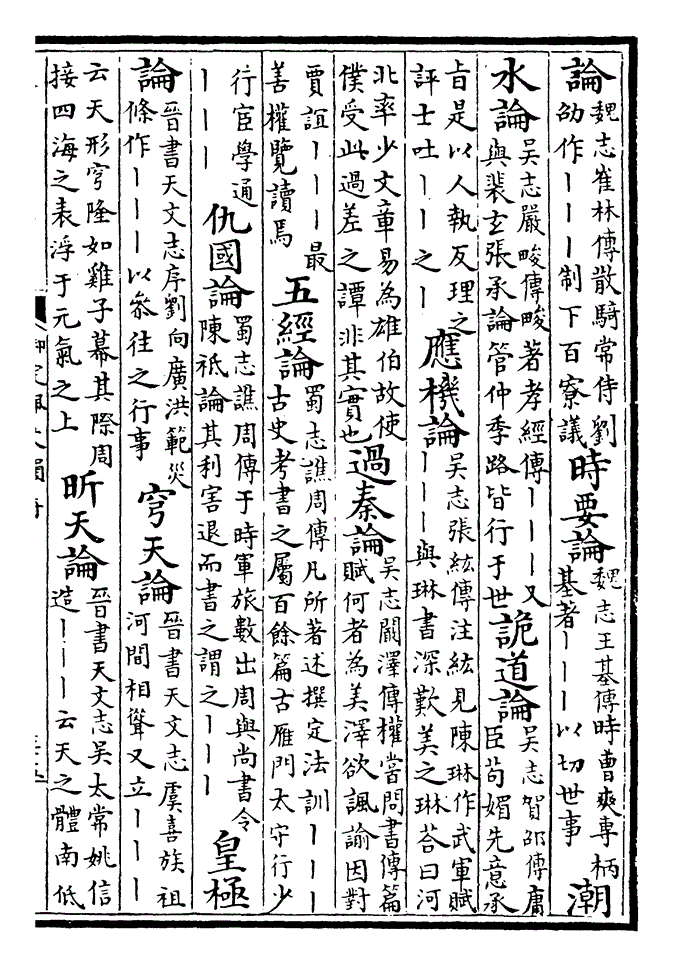 論
魏志崔林傳散騎常侍劉
劭作丨丨丨制下百寮議
時要論
魏志王基傳時曹爽專柄
基著丨丨丨以切世事
潮
水論
吳志嚴畯傳畯著孝經傳丨丨丨又
與裴玄張承論管仲季路皆行于世
詭道論
吳志賀邵傳庸
臣苟媚先意承
旨是以人執反理之
評士吐丨丨之丨
應機論
吳志張紘傳注紘見陳琳作武軍賦
丨丨丨與琳書深歎美之琳答曰河
北率少文章易為雄伯故使
僕受此過差之譚非其實也
過秦論
吳志闞澤傳權嘗問書傳篇
賦何者為美澤欲諷諭因對
賈誼丨丨丨最
善權覽讀焉
五經論
蜀志譙周傳凡所著述撰定法訓丨丨丨
古史考書之屬百餘篇古雁門太守行少
行宦學通
丨丨丨
仇國論
蜀志譙周傳于時軍旅數出周與尚書令
陳祗論其利害退而書之謂之丨丨丨
皇極
論
晉書天文志序劉向廣洪範災
條作丨丨丨以參往之行事
穹天論
晉書天文志虞喜族祖
河間相聳又立丨丨丨
云天形穹隆如雞子幕其際周
接四海之表浮于元氣之上
昕天論
晉書天文志吳太常姚信
造丨丨丨云天之體南低